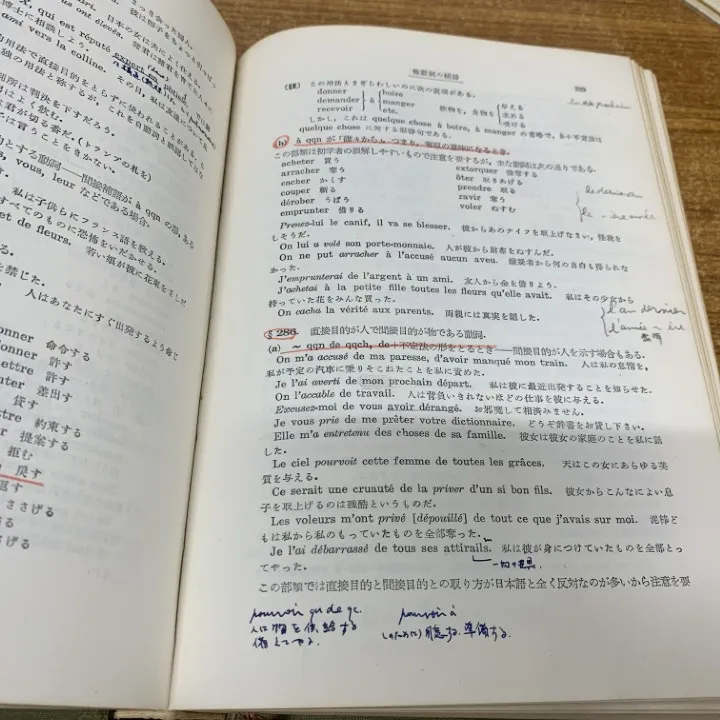 まさつ会った婦人
日本の女に夫によ
us ont élevés. 彼は帽子をも
X, qui est réputé expert en
ami vers la colline. その日，私は友達について
的用法で直接目的をとらずに使われることがある。
別所は判決を下すだろう。
はよく飲む。
は君が切る番だ．(トランプの札を)
は言うことをきかない。
的とする動詞——間接補語が à qqn の
, vous, leur などである場合.
私は子供らにフランス語を教える。
すべてのものに恐怖をいだかせる.
et de fleurs. 若い娘が彼に花束をさしだ
を禁じた.
人はあなたにすぐ出発するよう命
onner 命令する
donner 許す
ettre 許す
enter 差出す
貸す
ettre 約束する
er 提案する
拒む
戻す
返す
ささげる
る
ささげる
る
(註) この用法とまぎらわしいのに次の表現がある。
donner boire 与える
demander à manger 飲物を，食物を 求める
recevoir etc. 受ける
しかし，これは quelque chose à boire, à manger の省略で，à＋不定法は
quelque chose に対する形容句である．
la de prochain
(b) à qqn が「誰々から」つまり，奪取の意味になるとき.
この部類は初学者の誤解しやすいもので注意を要するが，主な動詞は次の通りである．
acheter 買う extorquer 強奪する
arracher 奪う ôter 取りあげる
cacher かくす prendre 取る
couper 斬る ravir 奪う
dérober うばう voler ぬすむ
emprunter 借りる
Prenez-lui le canif, il va se blesser. 彼からあのナイフを取上げなさい，怪我を
しそうだ．
On lui a volé son porte-monnaie. 人が彼から財布をぬすんだ．
On ne put arracher à l'accusé aucun aveu. 嫌疑者から何の自白も得られな
かった．
J'emprunterai de l'argent à un ami. 友人から金を借りよう．
J'achetai à la petite fille toutes les fleurs qu'elle avait. 私はその少女から
持っていた花をみんな買った．
On cacha la vérité aux parents. 両親には真実を隠した．
l'an dernier
§ 286. 直接目的が人で間接目的が物である動詞．
(a) ～ qqn de qqch, de＋不定法の形をとるとき——間接目的が人を示す場合もある．
On m'a accusé de ma paresse, d'avoir manqué mon train. 人は私の怠惰を，
私が予定の汽車に乗りそこねたことを私に責めた．
Je l'ai averti de mon prochain départ. 私は彼に最近出発することを知らせた．
On l'accable de travail. 人は背負いきれないほどの仕事を彼に与える．
Excusez-moi de vous avoir dérangé. お邪魔して相済みません．
Je vous prie de me prêter votre dictionnaire. どうぞ辞書をお貸し下さい．
Elle m'a entretenu des choses de sa famille. 彼女は彼女の家庭のことを私に話
した．
Le ciel pourvoit cette femme de toutes les grâces. 天はこの女にあらゆる美
質を与える．
Ce serait une cruauté de la priver d'un si bon fils. 彼女からこんなによい息
子を取上げるのは残酷というものだ．
Les voleurs m'ont privé [dépouillé] de tout ce que j'avais sur moi. 泥棒ど
もは私から私のもっていたものを全部奪った．
Je l'ai débarrassé de tous ses attirails. 私は彼が身につけていたものを全部とっ
てやった．
この部類では直接目的と間接目的との取り方が日本語と全く反対なのが多いから注意を要
pourvoir qn de qc. pourvoir à
人に物を供給する
備えてやる